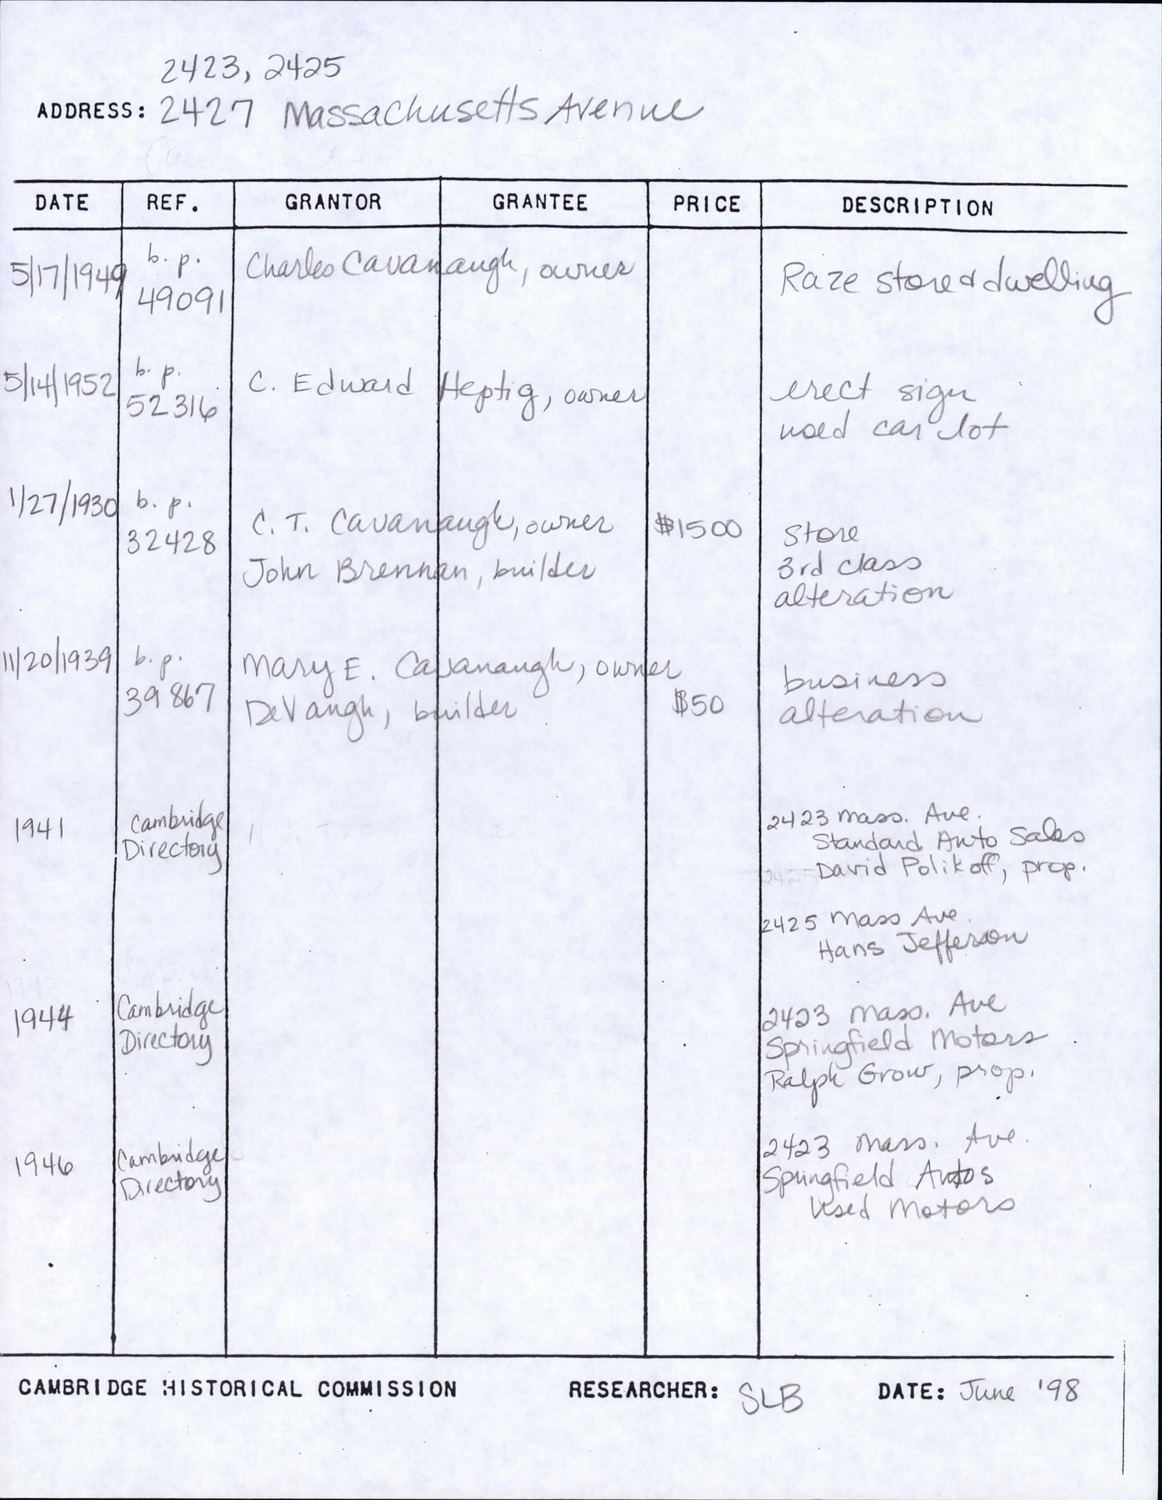 2423, 2425
ADDRESS: 2427 Massachusetts Avenue
DATE REF. GRANTOR GRANTEE PRICE DESCRIPTION
5/17/1949 b. p. 49091 Charles Cavanaugh, owner Raze store & dwelling
5/14/1952 b. p. 52316 C. Edward Heptig, owner erect sign
used car lot
1/27/1930 b. p. 32428 C. T. Cavanaugh, owner $1500 store
John Brennan, builder 3rd class
alteration
11/20/1939 b. p. 39867 Mary E. Cavanaugh, owner business
DeVaugh, builder $50 alteration
1941 Cambridge Directory 2423 Mass. Ave.
Standard Auto Sales
David Polikoff, prop.
2425 Mass Ave.
Hans Jefferson
1944 Cambridge Directory 2423 Mass. Ave
Springfield Motors
Ralph Grow, prop.
1946 Cambridge Directory 2423 Mass. Ave.
Springfield Autos
Used Motors
CAMBRIDGE HISTORICAL COMMISSION RESEARCHER: SLB DATE: June '98